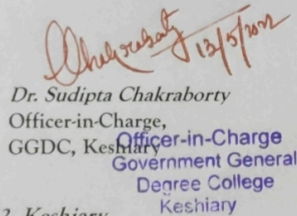 Chakraborty 13/5/2022
Dr. Sudipta Chakraborty
Officer-in-Charge,
GGDC, Keshiary
Officer-in-Charge
Government General
Degree College
Keshiary
Keshiary